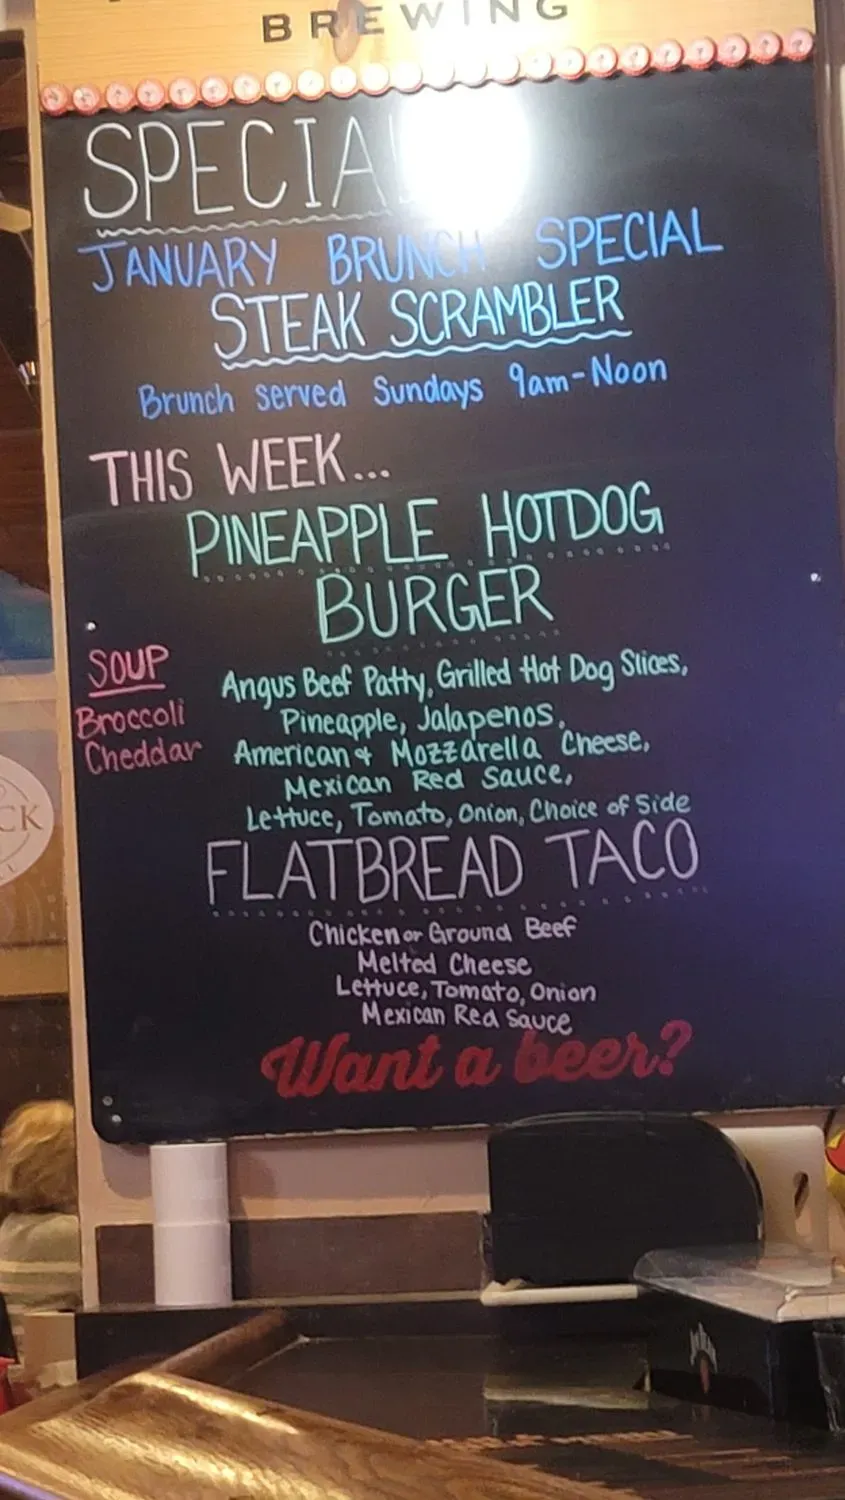 BREWING
JANUARY BRUNCH SPECIAL
STEAK SCRAMBLER
Brunch served Sundays 9am-Noon
THIS WEEK...
PINEAPPLE HOTDOG
BURGER
Angus Beef Patty, Grilled Hot Dog Slices,
Pineapple, Jalapenos,
American & Mozzarella Cheese,
Mexican Red Sauce,
Lettuce, Tomato, Onion, Choice of Side
SOUP
Broccoli
Cheddar
FLATBREAD TACO
Chicken or Ground Beef
Melted Cheese
Lettuce, Tomato, Onion
Mexican Red Sauce
Want a beer?